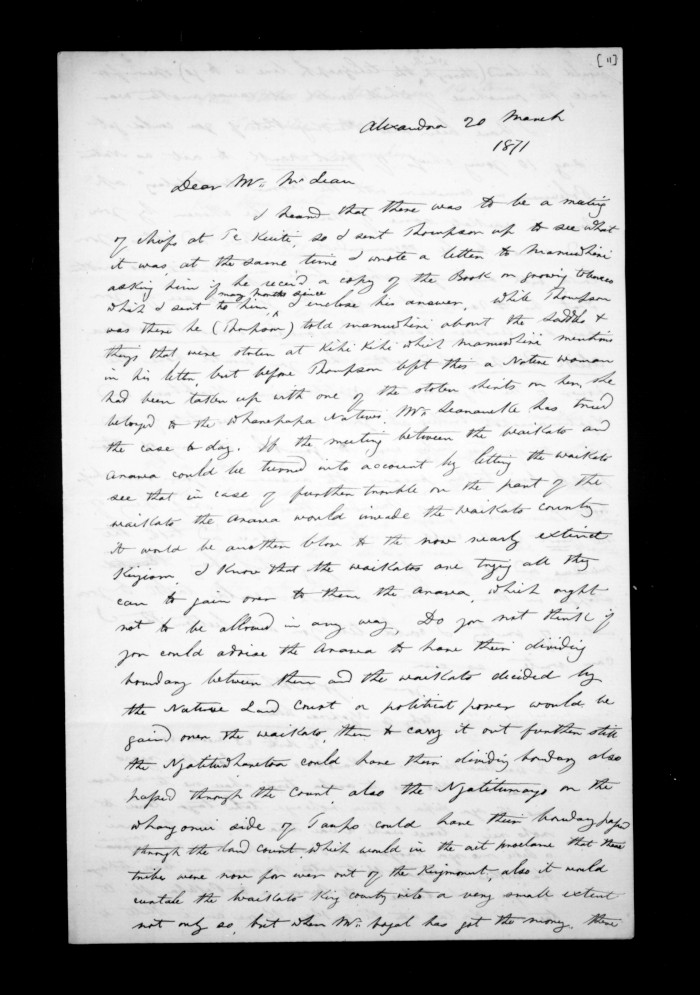 [11]
Alexandra 20 March
1871
Dear Mr. McLean
I heard that there was to be a meeting
of chiefs at Te Kuiti, so I sent Thompson up to see what
it was, at the same time I wrote a letter to Manuwhiri
asking him if he receiv'd a copy of the Book on growing tobacco
many months since
which I sent to him, I inclose his answer. While Thompson
was there he (Thompson) told manuwhiri about the saddles &
things that were stolen at Kihi Kihi which manuwhiri mentions
in his letter, but before Thompson left this a Native woman
had been taken up with one of the stolen shirts on her, she
belonged to the Whanepapa Natives. Mr. has tried
the case to day. If the meeting between the Waikato and
Arawa could be turned into account by letting the Waikato
see that in case of further trouble on the part of the
Waikato the Arawa would invade the Waikato country
it would be another blow to the now nearly extinct
Kingism, I know that the Waikatos are trying all they
can to gain over to them the Arawa, which ought
not to be allowed in any way, Do you not think if
you could advise the Arawa to have their dividing
boundary between them and the Waikato decided by
the Native Land Court a political power would be
gain'd over the Waikato, then to carry it out further still
the Ngatiraukawa could have their dividing boundary also
pass'd through the Court also the Ngatitumayo on the
Whanganui side of Taupo could have their boundary pass'd
through the land court, which would in the act proclame that these
tribes were now for ever out of the Kingmount, also it would
curtale the Waikato King county into a very small extent
not only so, but when Mr. has got the money, there